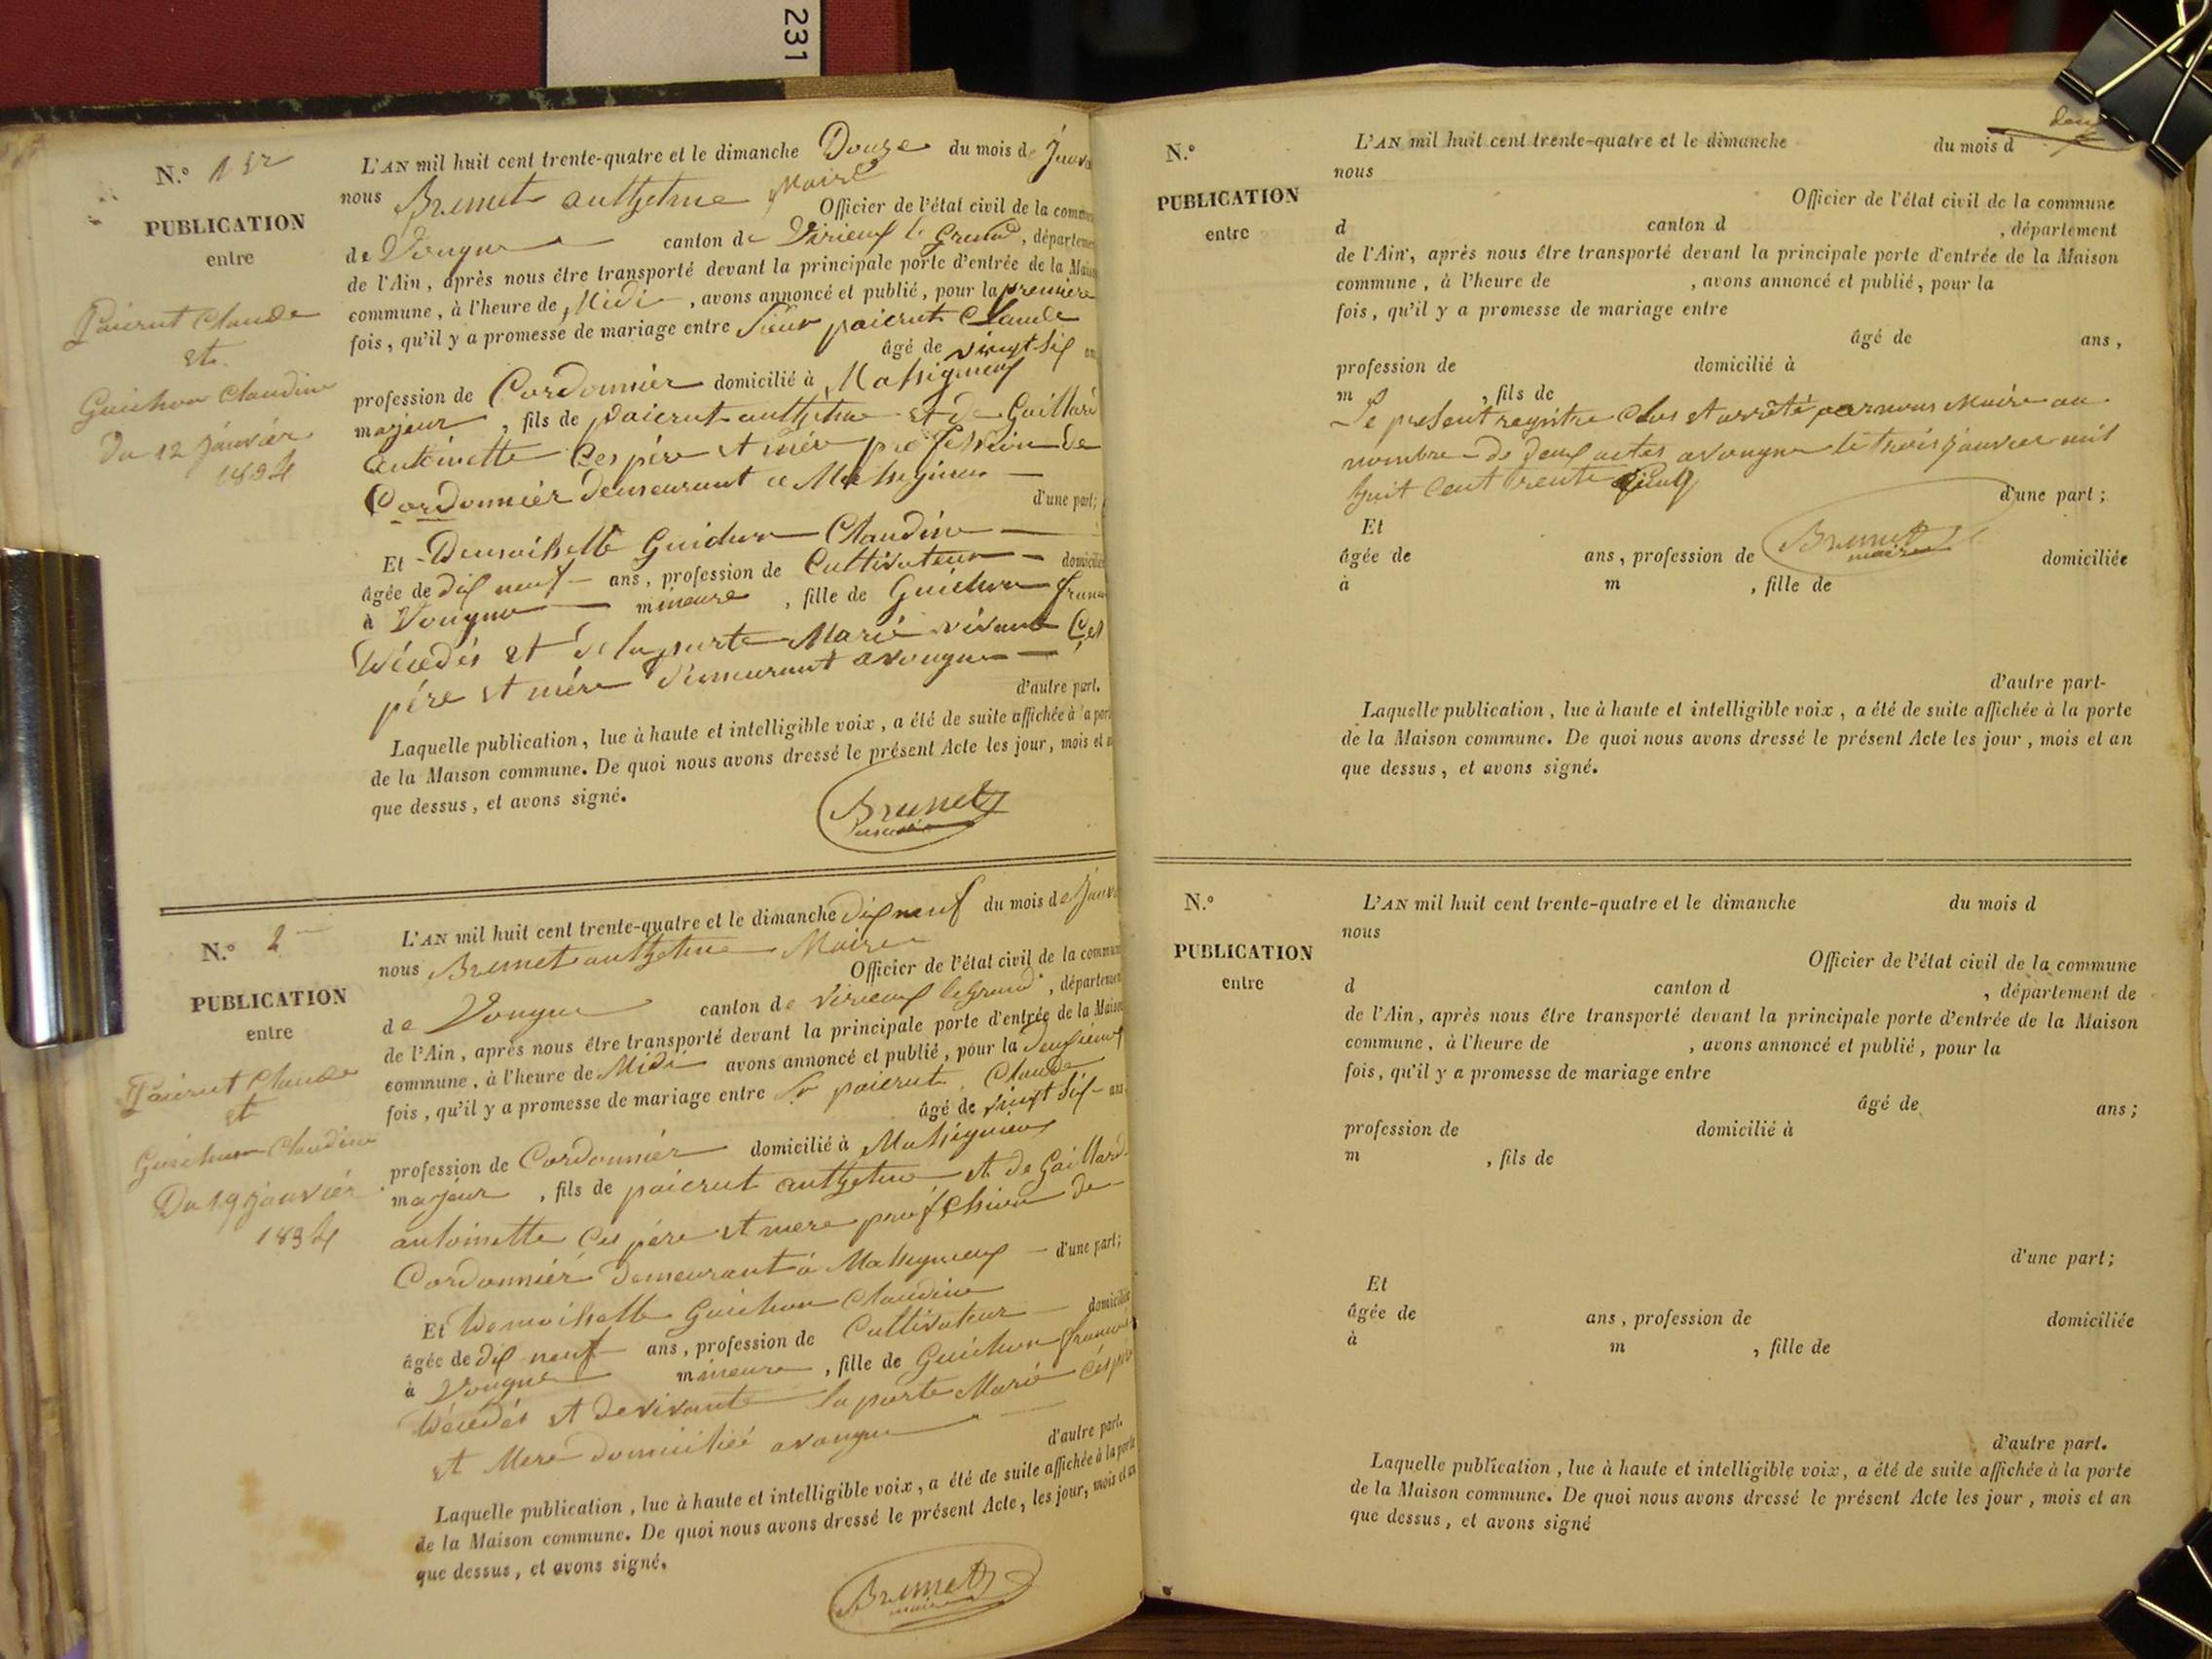 231
N.° 1er
PUBLICATION
entre
Paierut Claude
et
Guichon Claudine
Du 12 janvier
1834
L'AN mil huit cent trente-quatre et le dimanche Douze du mois de Janv
nous Brunet anthelme Maire
Officier de l'état civil de la commune
de Vongne canton de Virieux le Grand, départeme
de l'Ain, après nous être transporté devant la principale porte d'entrée de la Mais
commune, à l'heure de Midi, avons annoncé et publié, pour la première
fois, qu'il y a promesse de mariage entre Sieur paierut Claude
âgé de vingt six an
profession de Cordonnier domicilié à Massigneux
majeur, fils de paierut anthelme et de Gaillard
Antoinette Ces père et mère profession de
Cordonnier demeurant a Massigneux
d'une part;
Et Demoiselle Guichon Claudine
âgée de dix neuf ans, profession de Cultivateur domicilié
à Vongne mineure, fille de Guichon fran
Décédés et de laporte Marie vivant Ces
père et mère demeurant avongne
d'autre part.
Laquelle publication, lue à haute et intelligible voix, a été de suite affichée à la port
de la Maison commune. De quoi nous avons dressé le présent Acte les jour, mois et a
que dessus, et avons signé.
Brunet
maire
N.° 2
PUBLICATION
entre
Paierut Claude
et
Guichon Claudine
Du 19 janvier
1834
L'AN mil huit cent trente-quatre et le dimanche dix neuf du mois de Janv
nous Brunet anthelme Maire
Officier de l'état civil de la commun
de Vongne canton de Virieux le Grand, départemen
de l'Ain, après nous être transporté devant la principale porte d'entrée de la Maison
commune, à l'heure de Midi avons annoncé et publié, pour la deuxieme
fois, qu'il y a promesse de mariage entre Sr paierut Claude
âgé de vingt six ans
profession de Cordonnier domicilié à Massigneux
majeur, fils de paierut anthelme et de Gaillard
antoinette Ces père et mere profession de
Cordonnier demeurant à Massigneux d'une part;
Et Demoiselle Guichon Claudine
âgée de dix neuf ans, profession de Cultivateur domicilié
à Vongne mineure, fille de Guichon francois
Décédés et de vivante la porte Marie Ces père
et Mere domiciliée avongne
d'autre part.
Laquelle publication, lue à haute et intelligible voix, a été de suite affichée à la porte
de la Maison commune. De quoi nous avons dressé le présent Acte, les jour, mois et an
que dessus, et avons signé.
Brunet
maire
N.°
PUBLICATION
entre
deux
L'AN mil huit cent trente-quatre et le dimanche du mois d
nous
Officier de l'état civil de la commune
d canton d , département
de l'Ain, après nous être transporté devant la principale porte d'entrée de la Maison
commune, à l'heure de , avons annoncé et publié, pour la
fois, qu'il y a promesse de mariage entre
âgé de ans,
profession de domicilié à
m , fils de
Le present registre Clos et arrêté par nous Maire au
nombre de deux actes avongne le trois janvier mil
huit Cent trente Cinq
d'une part;
Et
Brunet
maire
âgée de ans, profession de domiciliée
à m , fille de
d'autre part-
Laquelle publication, lue à haute et intelligible voix, a été de suite affichée à la porte
de la Maison commune. De quoi nous avons dressé le présent Acte les jour, mois et an
que dessus, et avons signé.
N.°
PUBLICATION
entre
L'AN mil huit cent trente-quatre et le dimanche du mois d
nous
Officier de l'état civil de la commune
d canton d , département de
de l'Ain, après nous être transporté devant la principale porte d'entrée de la Maison
commune, à l'heure de , avons annoncé et publié, pour la
fois, qu'il y a promesse de mariage entre
âgé de ans;
profession de domicilié à
m , fils de
d'une part;
Et
âgée de ans, profession de domiciliée
à m , fille de
d'autre part.
Laquelle publication, lue à haute et intelligible voix, a été de suite affichée à la porte
de la Maison commune. De quoi nous avons dressé le présent Acte les jour, mois et an
que dessus, et avons signé